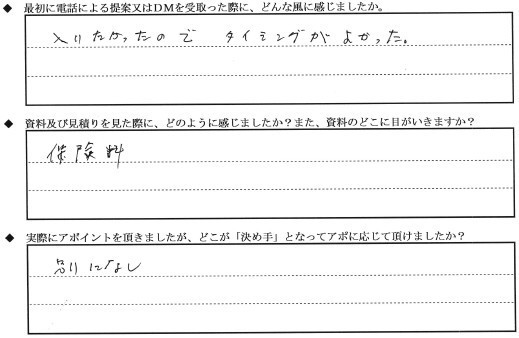 ◆ 最初に電話による提案又はDMを受取った際に、どんな風に感じましたか。
入りたかったので タイミングがよかった。
◆ 資料及び見積りを見た際に、どのように感じましたか？また、資料のどこに目がいきますか？
保険料
◆ 実際にアポイントを頂きましたが、どこが「決め手」となってアポに応じて頂けましたか？
別になし